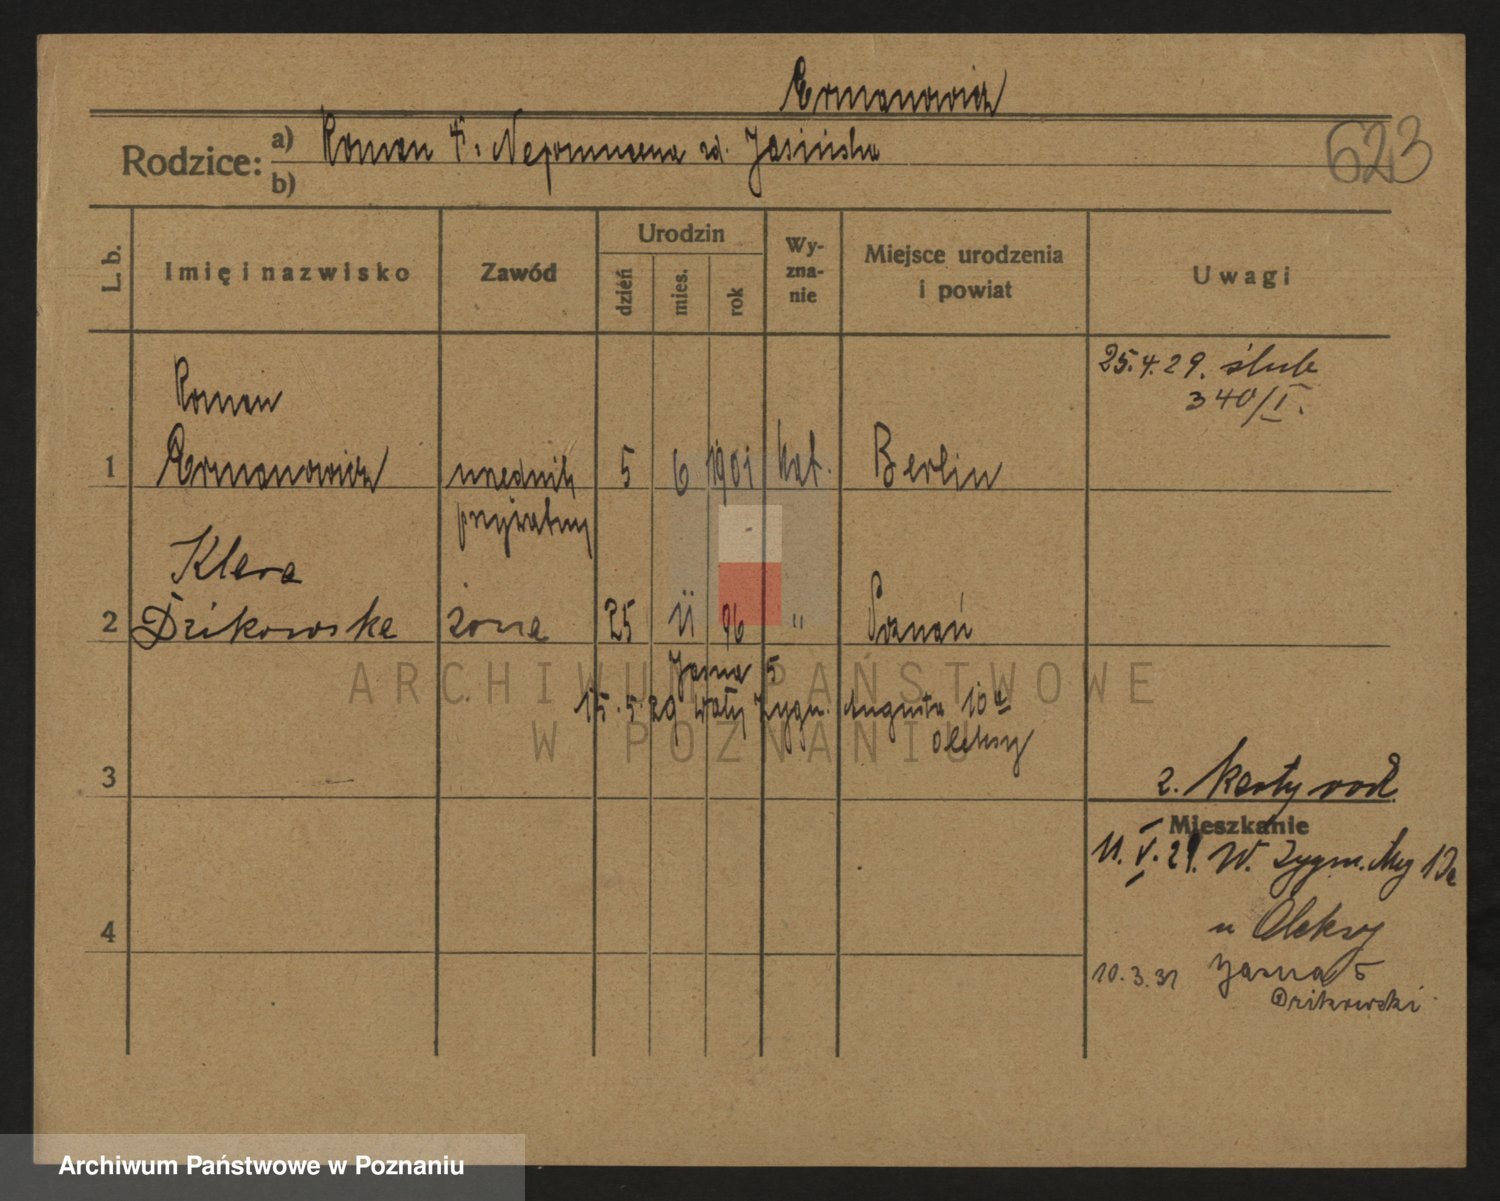 Ermanowicz
Rodzice: a) Roman i Nepomucena zd. Jasińska
b)
623
L. b.
Imię i nazwisko
Zawód
Urodzin
dzień
mies.
rok
Wy-
zna-
nie
Miejsce urodzenia
i powiat
Uwagi
25.4.29. ślub
340/I.
Roman
1 Ermanowicz urzędnik 5 6 1901 kat. Berlin
prywatny
Klara
2 Dzikowska żona 25 11 96 " Poznań
Jasna 5
15.5.29 Wały Zygm. Augusta 10a
Oleksy
3
2. karty rodz.
Mieszkanie
11.V.29. W. Zygm. Aug 10a
u Oleksy
4
10.3.31 Jasna 5
Dzikowski
ARCHIWUM PAŃSTWOWE
W POZNANIU
Archiwum Państwowe w Poznaniu